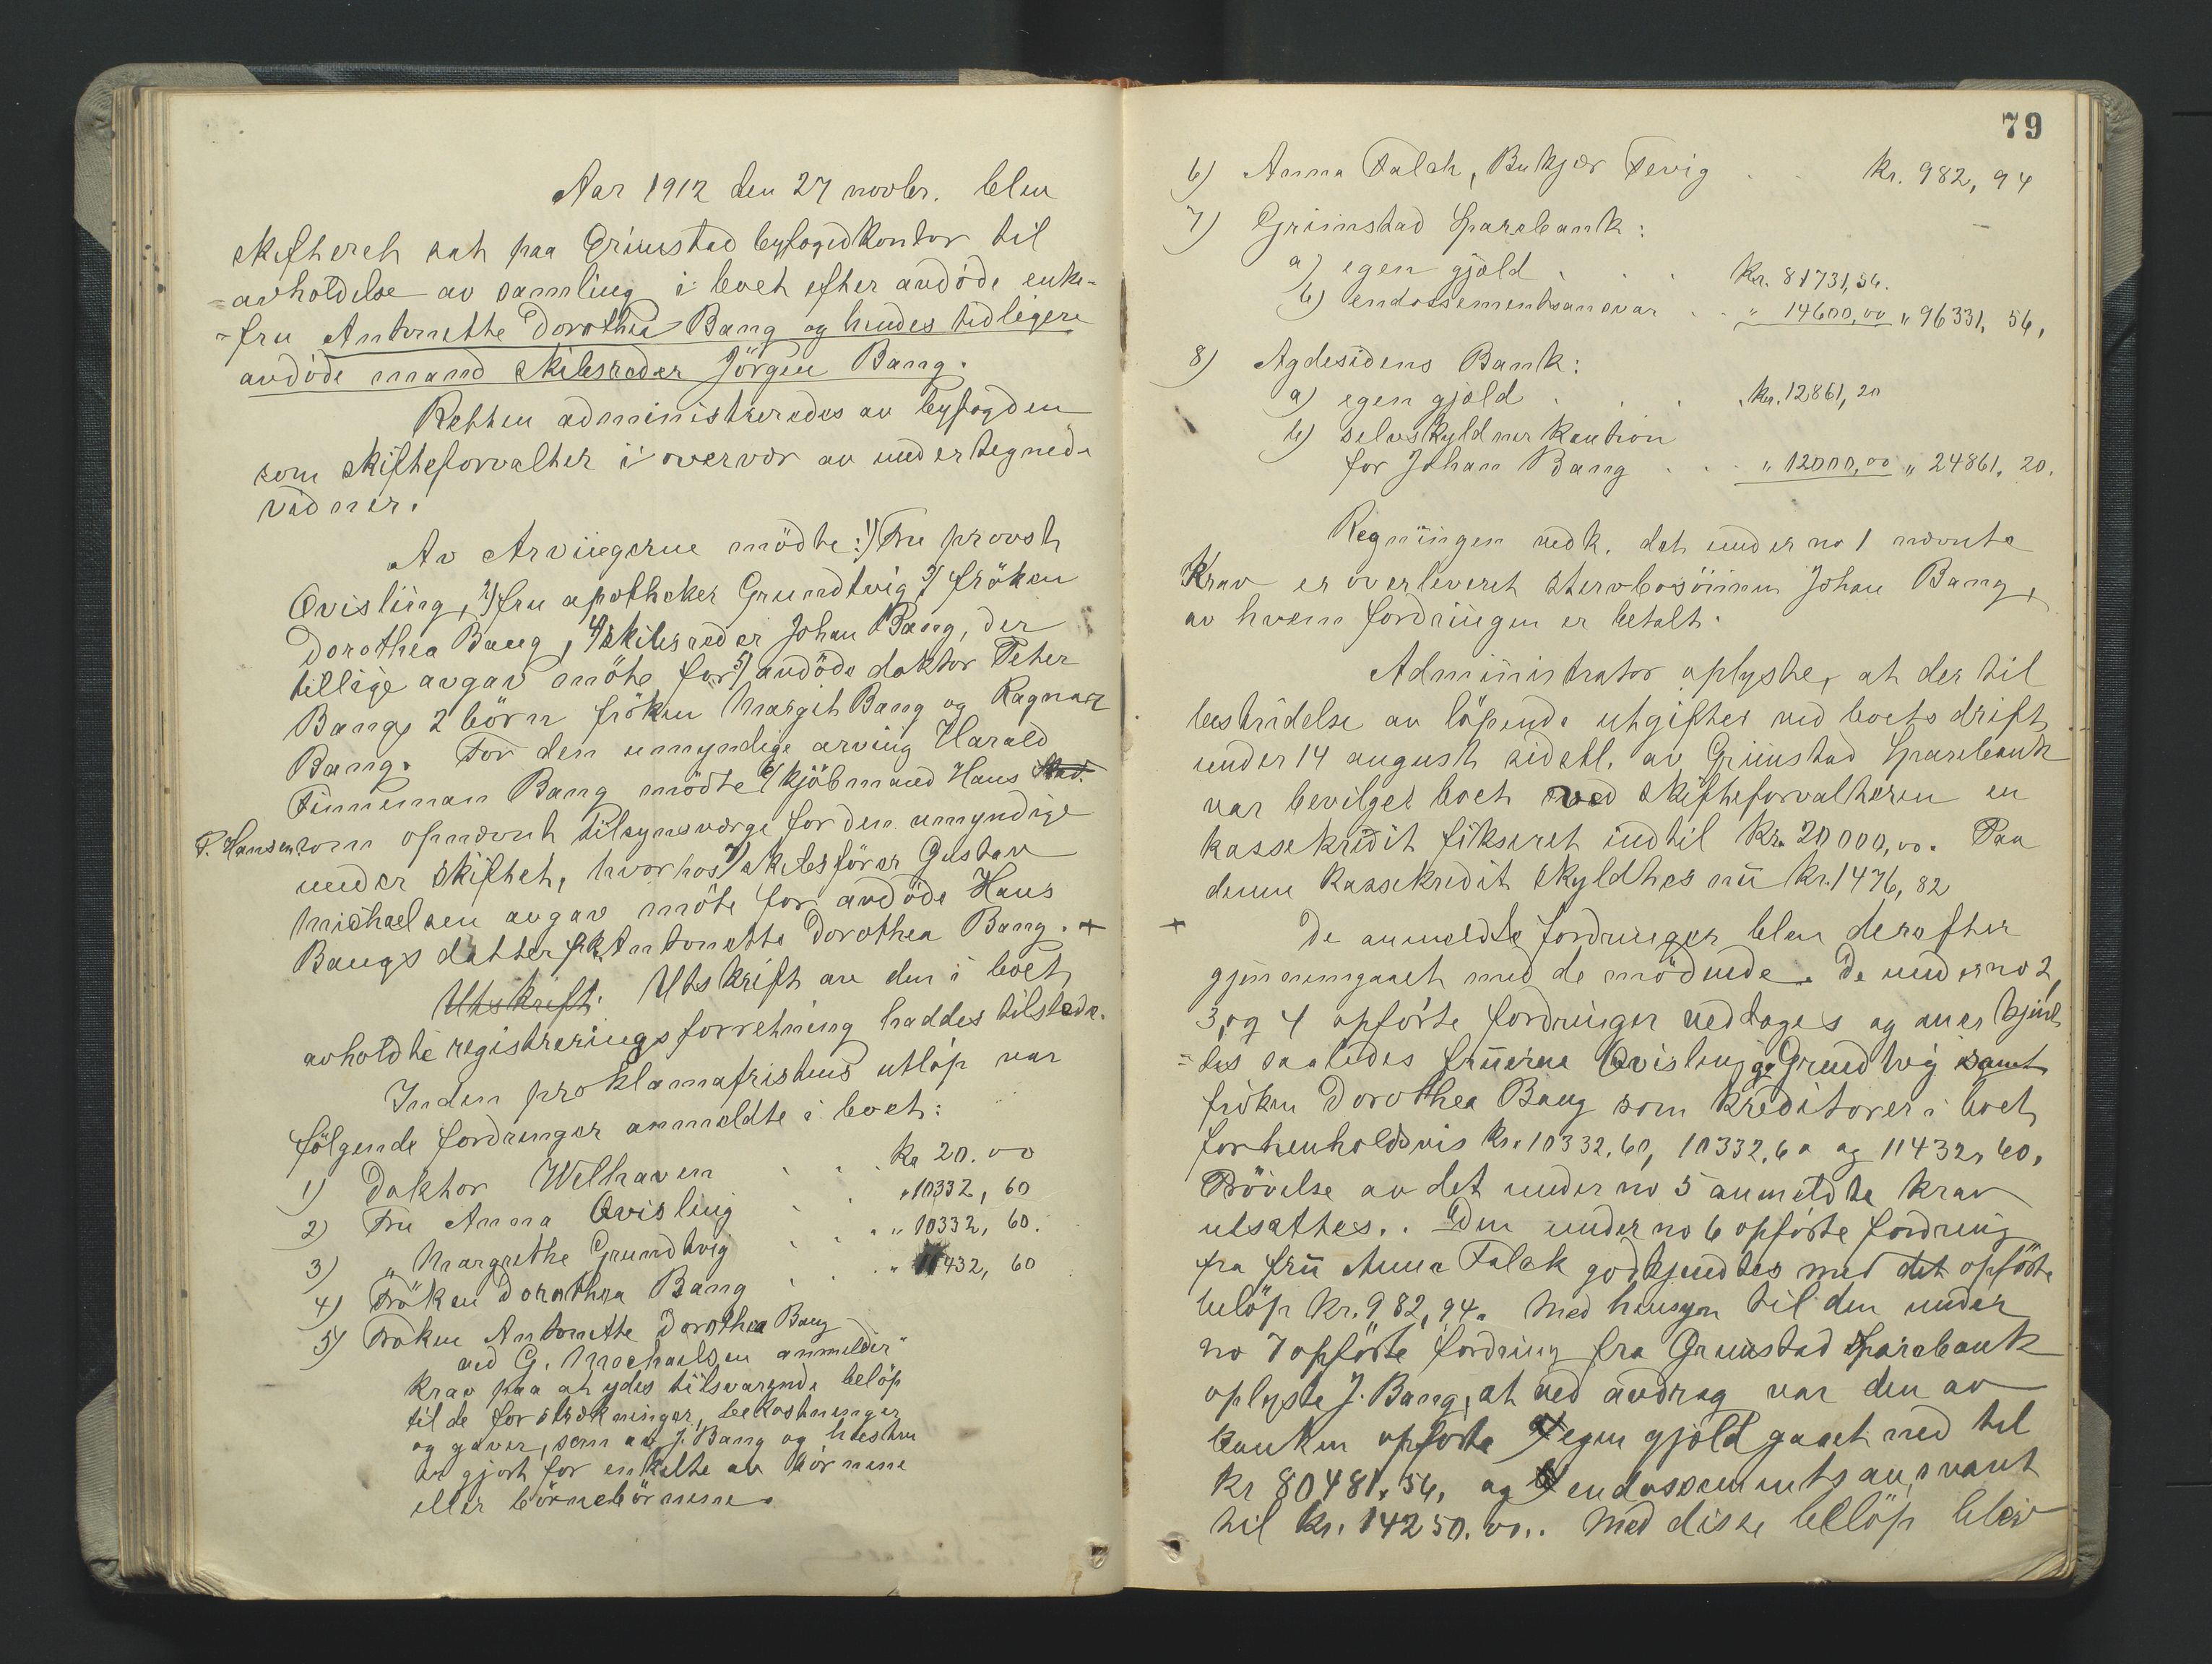 Aar 1912 den 27 novbr. blev
skifteret sat paa Grimstad byfogedkontor til
=avholdelse av samling i boet efter avdöde enke-
=fru Antonette Dorothea Bang og hendes tidligere
avdöde mand skibsreder Jörgen Bang.
Retten administreredes av byfogden
som skifteforvalter i overvær av undertegnede
vidner.
Av Arvingerne mödte: 1) Fru provst
Qvisling, 2) fru apotheker Grundtvig, 3) fröken
Dorothea Bang, 4) skibsreder Johan Bang, der
tillige avgav möte for 5) avdöde doktor Peter
Bangs 2 börn fröken Margit Bang og Ragnar
Bang. For den umyndige arving Harald
Finneman Bang mödte 6) kjöbmand Hans
P. Hansen som opnævnt tilsynsværge for den umyndige
under skiftet, hvorhos 7) skibsförer Gustav
Michaelsen avgav möte for avdöde Hans
Bangs datter frk. Antonette Dorothea Bang. +
Utskrift. Utskrift av den i boet
avholdte registreringsforretning haddes tilstede.
Inden proklamafristens utlöp var
fölgende fordringer anmeldte i boet:
1) Doktor Welhaven . . . Kr 20.00
2) Fru Anna Qvisling . . " 10332, 60
3) " Margrethe Grundtvig . . . " 10332, 60.
4) Fröken Dorothea Bang . . . " 11432, 60
5) Fröken Antonette Dorothea Bang
ved G. Michaelsen anmelder "
krav paa at ydes tilsvarende belöp
til de forstrækninger, bekostninger
og gaver, som av J. Bang og hustru
er gjort for enkelte av börnene
eller börnebörnene.
79
6) Anna Falch, Bukjær Fevig . . kr. 982, 94
7) Grimstad Sparebank:
a) egen gjæld . . . Kr. 81731,56.
b) endossementsansvar . . " 14600,00 " 96331, 56,
8) Agdesidens Bank:
a) egen gjæld . . . Kr. 12861, 20
b) selvskyldnerkaution
for Johan Bang . . . " 12000,00 " 24861, 20.
Regningen vedk. det under no 1 nævnte
Krav er overleveret stervbosönnen Johan Bang,
av hvem fordringen er betalt.
Administrator oplyste, at der til
bestridelse av löpende utgifter ved boets drift
under 14 august sidstl. av Grimstad Sparebank
var bevilget boet ved skifteforvalteren en
kassekredit fikseret indtil Kr. 20000,00. Paa
denne kassekredit skyldtes nu kr. 1476, 82
+ De anmeldte fordringer blev derefter
gjennemgaaet med de mödende. De under no 2,
3, og 4 opförte fordringer vedtoges og anerkjend-
=tes saaledes fruerne Qvisling og Grundtvig samt
fröken Dorothea Bang som kreditorer i boet
forhenholdsvis kr. 10332,60, 10332,60 og 11432,60.
Prövelse av det under no 5 anmeldte krav
utsattes.. Den under no 6 opförte fordring
fra fru Anna Falck godkjendtes med det opförte
belöp kr. 982,94. Med hensyn til den under
no 7 opförte fordring fra Grimstad Sparebank
oplyste J. Bang, at ved avdrag var den av
banken opförte a) egen gjæld gaaet ned til
kr 80481,56, og b) endossementsansvaret
til kr. 14250.00.. Med disse belöp blev